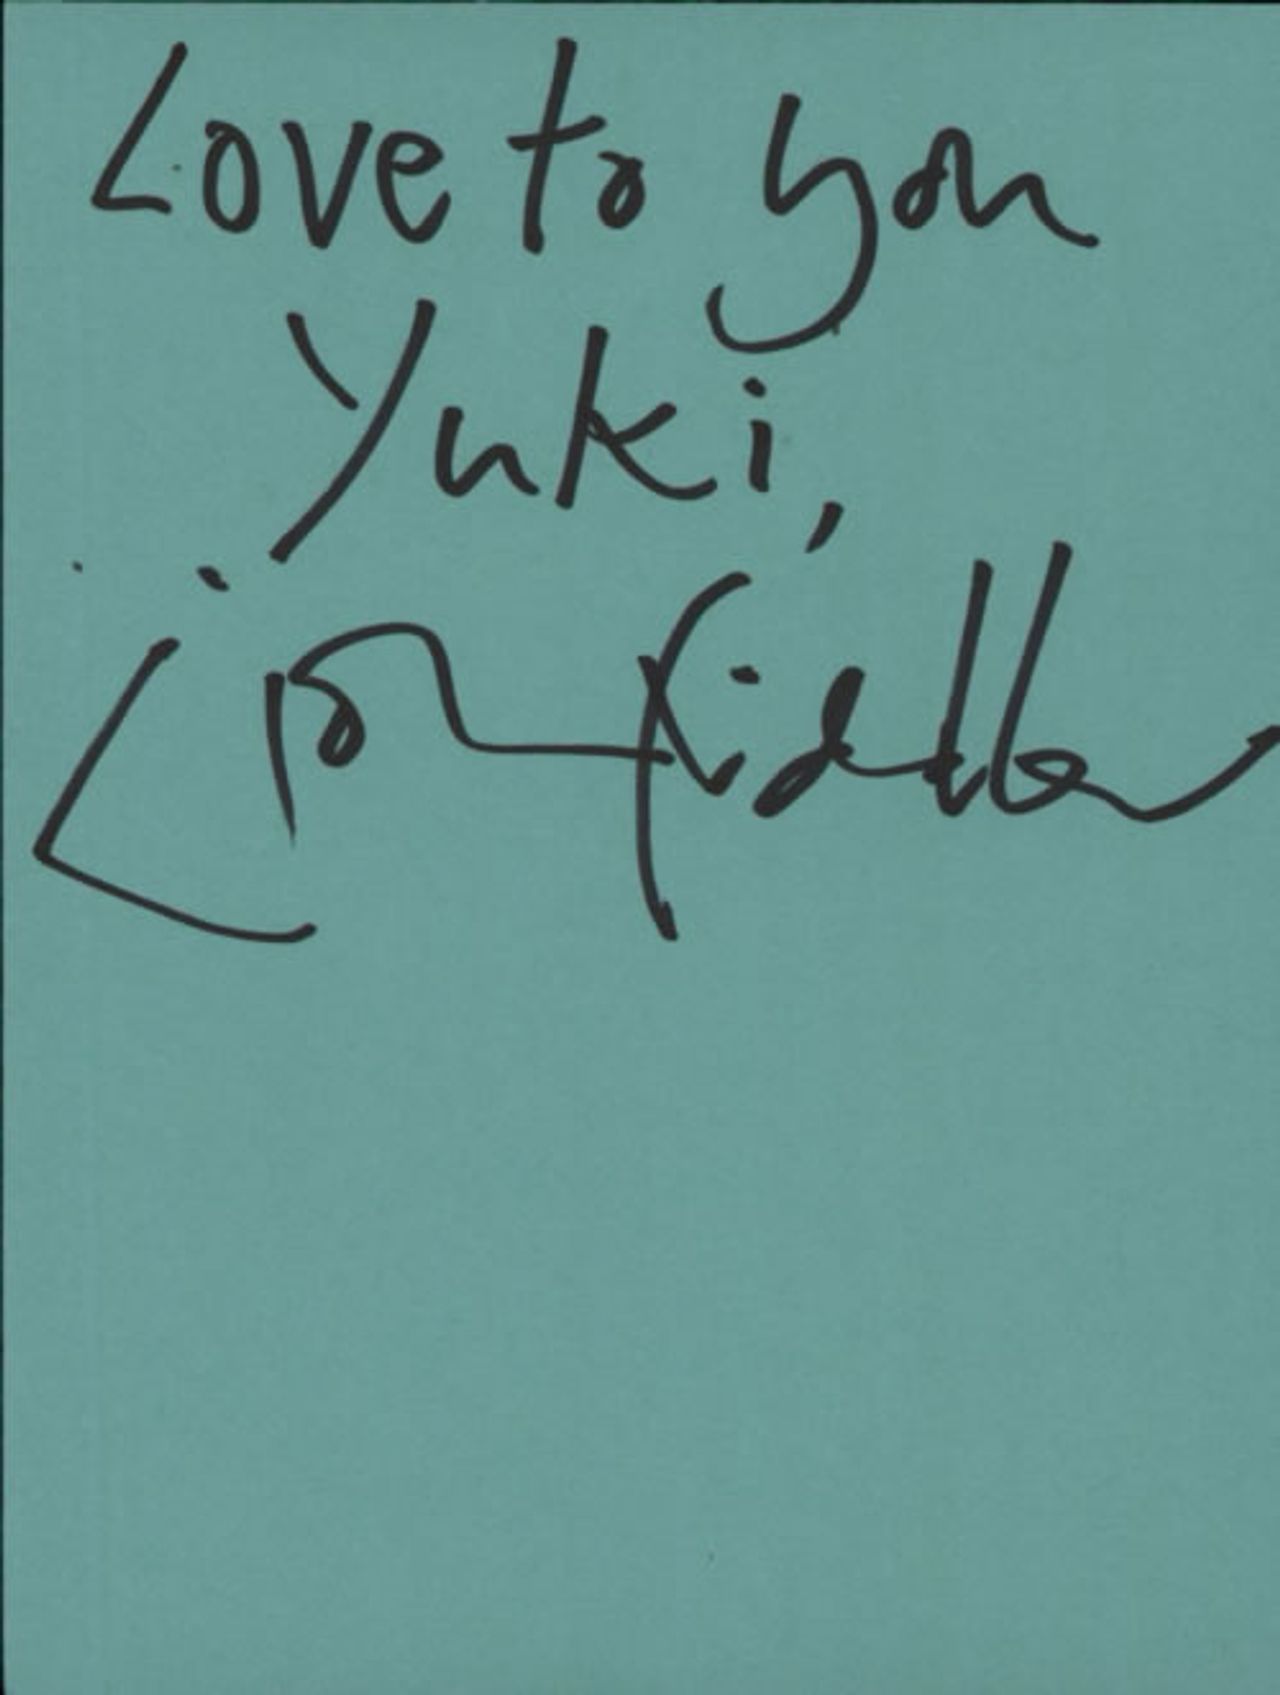 Love to you
Yuki,